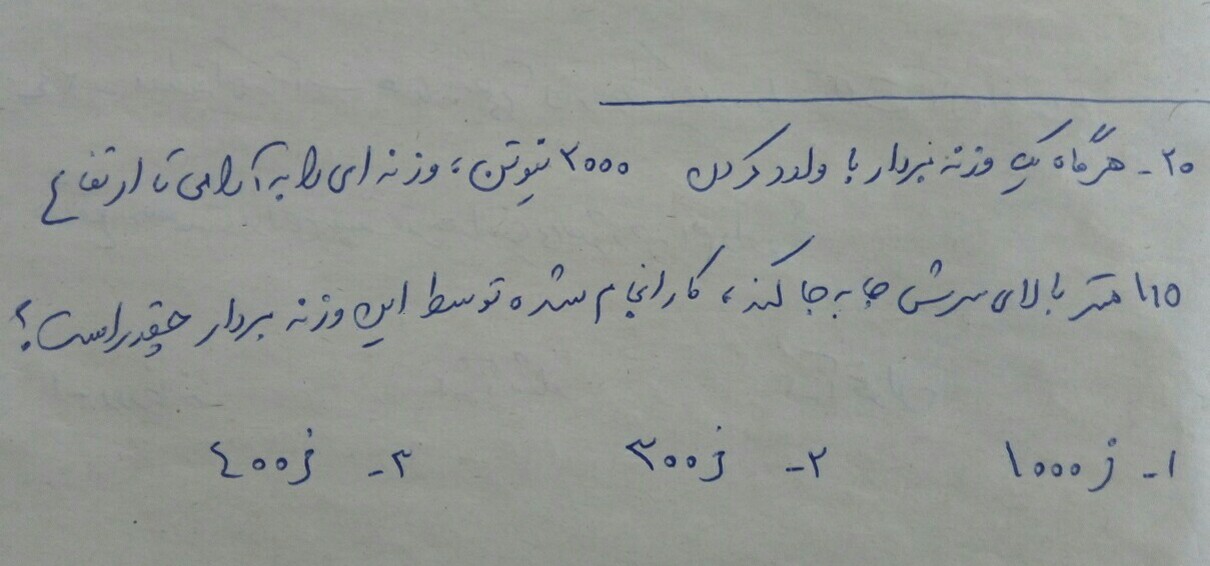 ۲۰- هرگاه یک وزنه بردار با وارد کردن ۲۰۰۰ نیوتن، وزنه ای را به آرامی تا ارتفاع
۱/۵ متر بالای سرش جا به جا کند، کار انجام شده توسط این وزنه بردار چقدر است؟
۱- ژ ۱۰۰۰ ۲- ژ ۳۰۰ ۳- ژ ۴۰۰